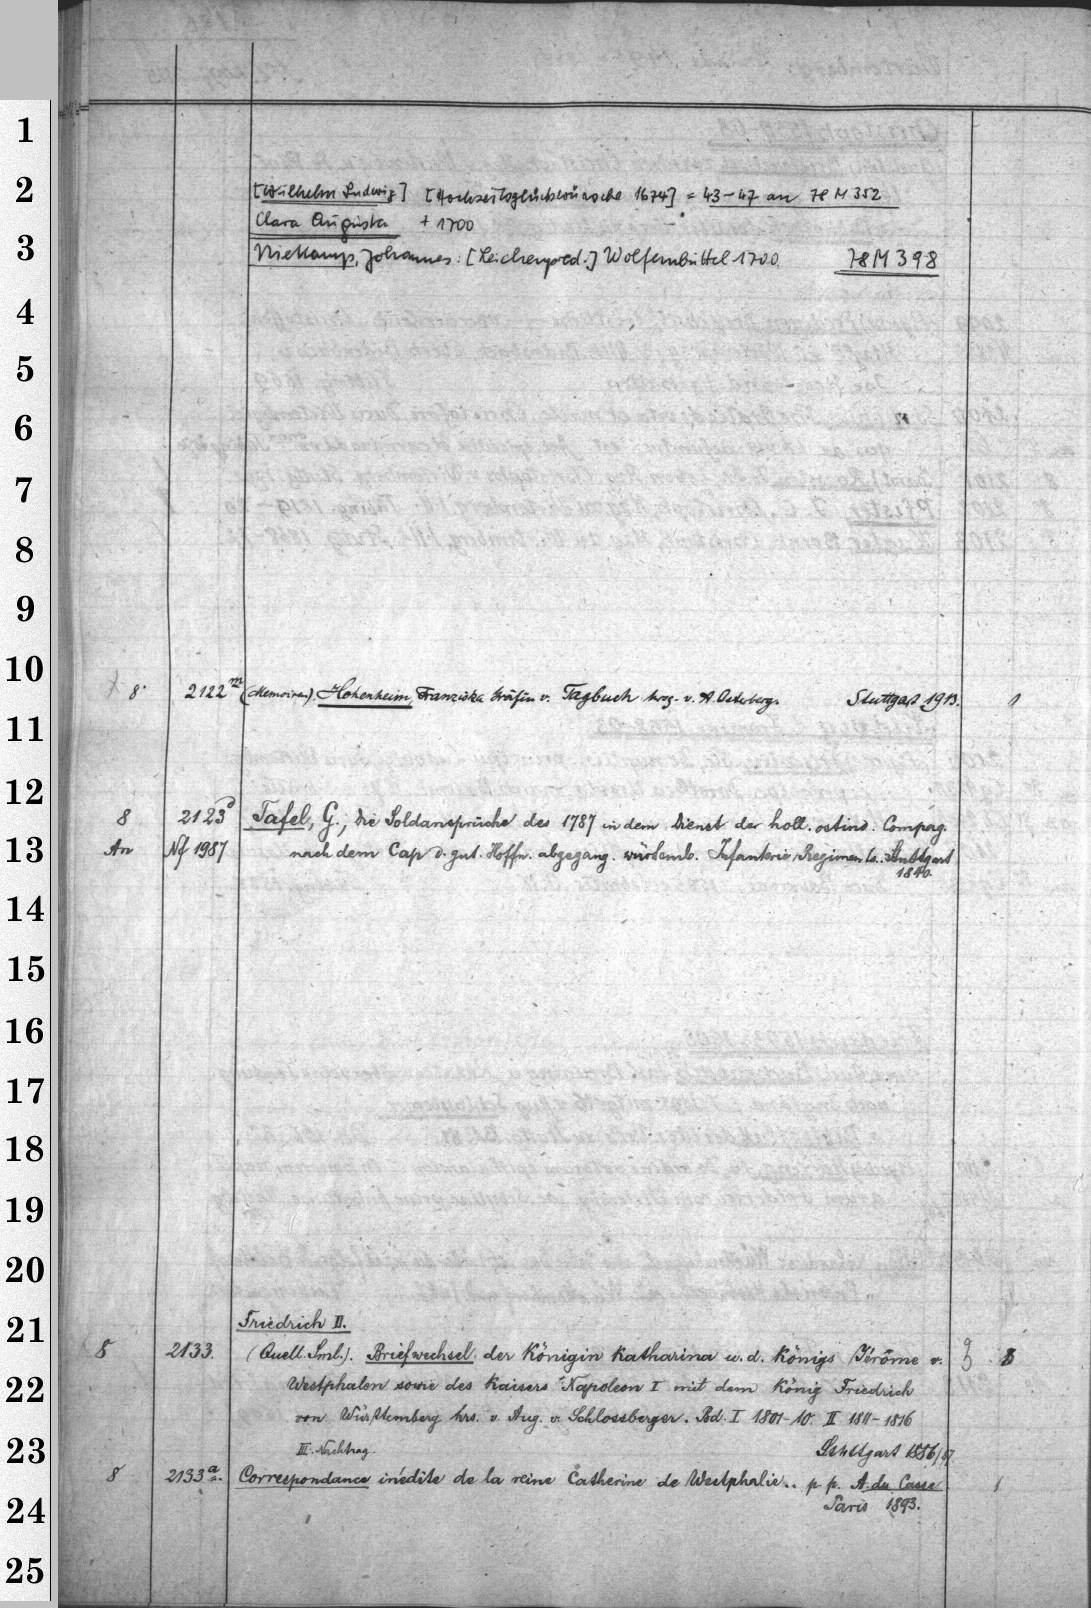 [Wilhelm Ludwig] [Hochzeitsglückwünsche 1674] = 43-47 an 78 M 352
Clara Augusta + 1700
Niekamp, Johannes: [Leichenpred.] Wolfenbüttel 1700. 78 M 398
8. 2122 m (Memoiren) Hohenheim, Franziska Gräfin v. Tagbuch hrsg. v. A. Osterberg. Stuttgart 1913. 1
8 2123 Tafel, G., Die Soldansprüche des 1787 in dem Dienst der holl. ostind. Compag.
An Nf 1987 nach dem Cap d. gut. Hoffn. abgegang. würtemb. Infanterie Regiments. Stuttgart
1840.
Friedrich II.
8 2133. (Quell. Sml.). Briefwechsel der Königin Katharina u. d. Königs Jérôme v. 3
Westphalen sowie des Kaisers Napoleon I mit dem König Friedrich
von Württemberg hrs. v. Aug. v. Schlossberger. Bd. I 1801-10. II 1811-1816
III. Nachtrag. Stuttgart 1886/87
8 2133 a. Correspondance inédite de la reine Catherine de Westphalie.. p. p. A. du Casse 1
Paris 1893.
1
2
3
4
5
6
7
8
9
10
11
12
13
14
15
16
17
18
19
20
21
22
23
24
25